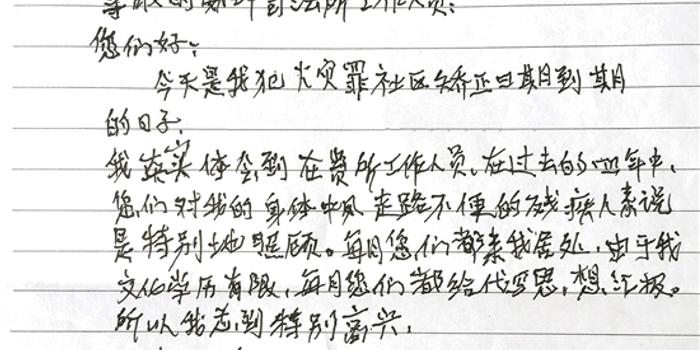 尊敬的 司法所工作人员:
您们好:
今天是我犯火灾罪社区矫正日期到期
的日子;
我真实体会到在贵所工作人员,在过去的四年中,
您们对我的身体中风走路不便的残疾人来说
是特别地照顾。每月您们都来我居处,由于我
文化学历有限,每月您们都给代写思想汇报。
所以我感到特别高兴,